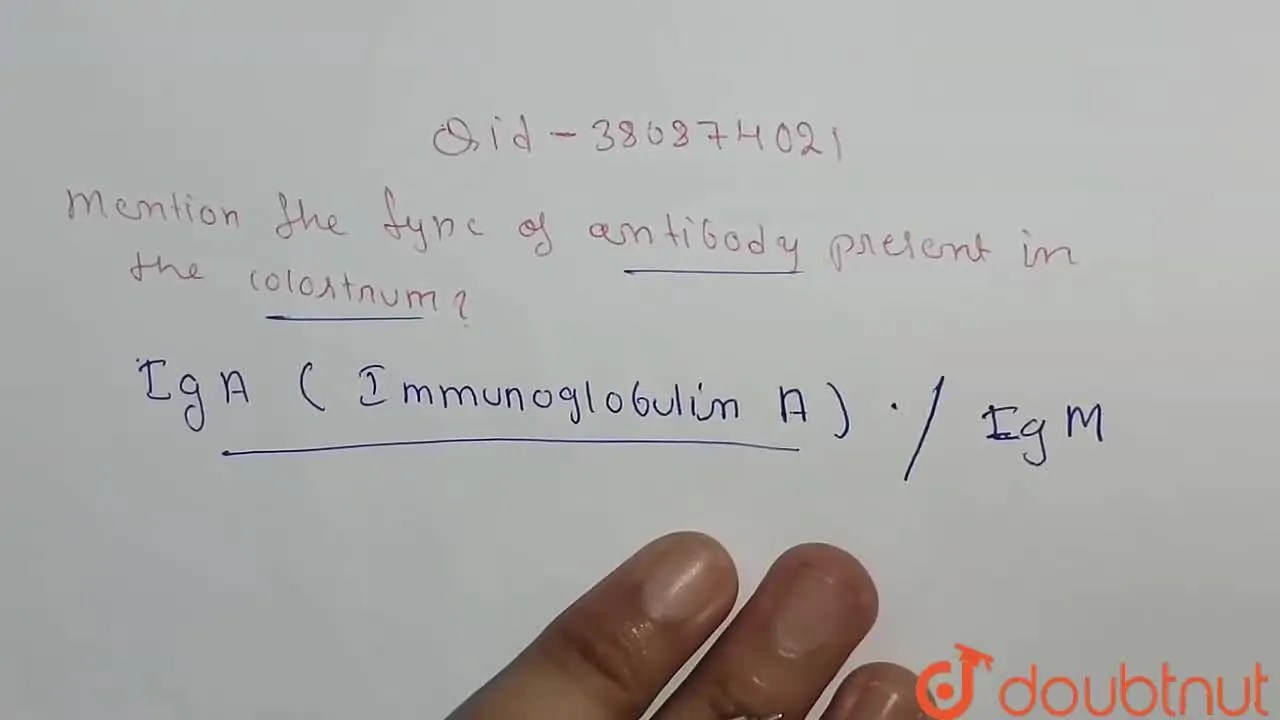 Qid - 380374021
Mention the type of antibody present in
the colostrum?
IgA ( Immunoglobulin A ) . / IgM
doubtnut